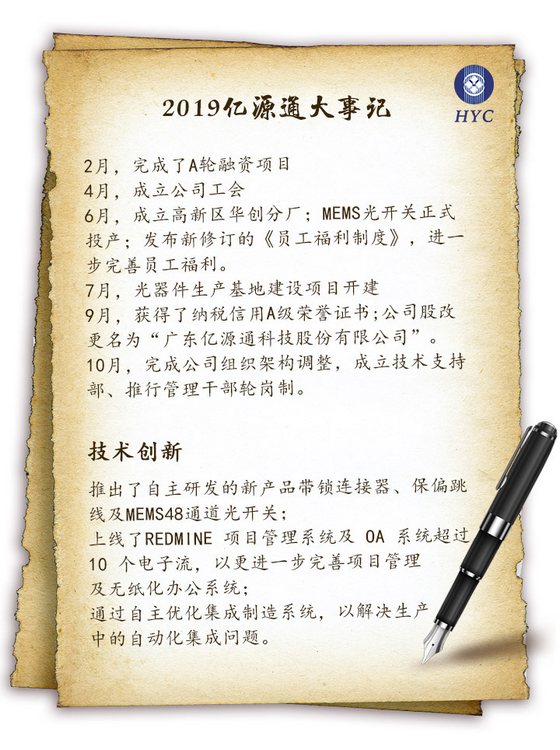 2019亿源通大事记
HYC
2月，完成了A轮融资项目
4月，成立公司工会
6月，成立高新区华创分厂；MEMS光开关正式
投产；发布新修订的《员工福利制度》，进一
步完善员工福利。
7月，光器件生产基地建设项目开建
9月，获得了纳税信用A级荣誉证书;公司股改
更名为“广东亿源通科技股份有限公司”。
10月，完成公司组织架构调整，成立技术支持
部、推行管理干部轮岗制。
技术创新
推出了自主研发的新产品带锁连接器、保偏跳
线及MEMS48通道光开关；
上线了REDMINE 项目管理系统及 OA 系统超过
10 个电子流，以更进一步完善项目管理
及无纸化办公系统；
通过自主优化集成制造系统，以解决生产
中的自动化集成问题。